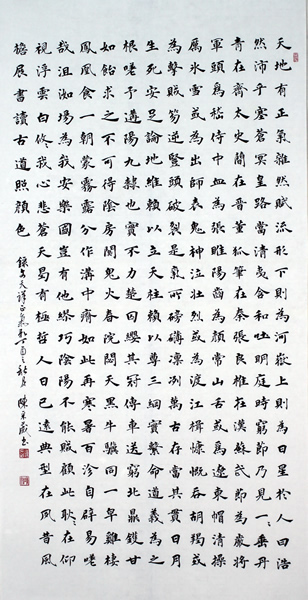 天地有正氣雜然賦流形下則為河嶽上則為日星於人曰浩
然沛乎塞蒼冥皇路當清夷含和吐明庭時窮節乃見一〻垂丹
青在齊太史簡在晉董狐筆在秦張良椎在漢蘇武節為嚴將
軍頭為嵇侍中血為張睢陽齒為顏常山舌或為遼東帽清操
厲冰雪或為出師表鬼神泣壯烈或為渡江楫慷慨吞胡羯或
為擊賊笏逆豎頭破裂是氣所磅礴凜冽萬古存當其貫日月
生死安足論地維賴以立天柱賴以尊三綱實繫命道義為之
根嗟予遘陽九隸也實不力楚囚纓其冠傳車送窮北鼎鑊甘
如飴求之不可得陰房闃鬼火春院閟天黑牛驥同一皁雞棲
鳳凰食一朝蒙霧露分作溝中瘠如此再寒暑百沴自辟易嗟
哉沮洳場為我安樂國豈有他繆巧陰陽不能賊顧此耿〻在仰
視浮雲白悠〻我心悲蒼天曷有極哲人日已遠典型在夙昔風
簷展書讀古道照顏色 錄文天祥正氣歌丁酉之秋月 陳